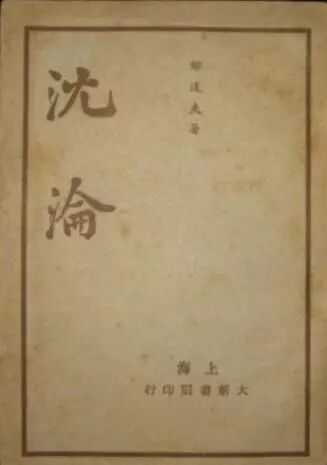 郁達夫著
沈淪
上海
大新書局印行